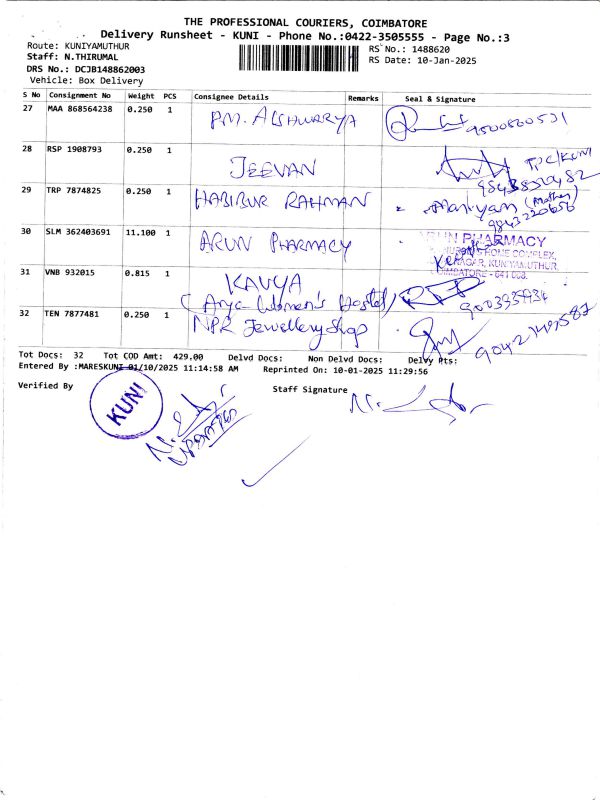 THE PROFESSIONAL COURIERS, COIMBATORE
Delivery Runsheet - KUNI - Phone No.:0422-3505555 - Page No.:3
Route: KUNIYAMUTHUR
RS No.: 1488620
Staff: N.THIRUMAL
RS Date: 10-Jan-2025
DRS No.: DCJB148862003
Vehicle: Box Delivery
S No Consignment No Weight PCS Consignee Details Remarks Seal & Signature
27 MAA 868564238 0.250 1 P.M. AISHWARYA
28 RSP 1908793 0.250 1 JEEVAN TPC/KUNI
29 TRP 7874825 0.250 1 HABIBUR RAHMAN Mariyam (Mother)
9843220656
30 SLM 362403691 11.100 1 ARUN PHARMACY
PHARMACY
HOME COMPLEX,
KUNIYAMUTHUR
COIMBATORE - 641 008.
31 VNB 932015 0.815 1 KAVYA
(Arya Women's Hostel)
32 TEN 7877481 0.250 1 NPR Jewellery shop
Tot Docs: 32 Tot COD Amt: 429.00 Delvd Docs: Non Delvd Docs: Delvy Pts:
Entered By :MARESKUNI 01/10/2025 11:14:58 AM Reprinted On: 10-01-2025 11:29:56
Verified By
Staff Signature
KUNI